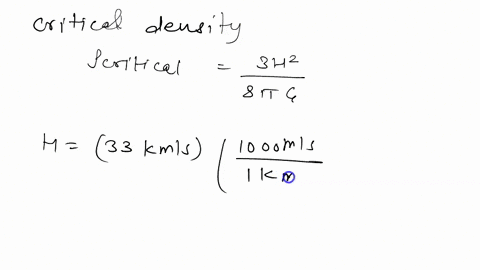 critical density
ρcritical = 3H² / 8πG
H = (33 km/s) ( 1000 m/s / 1 km